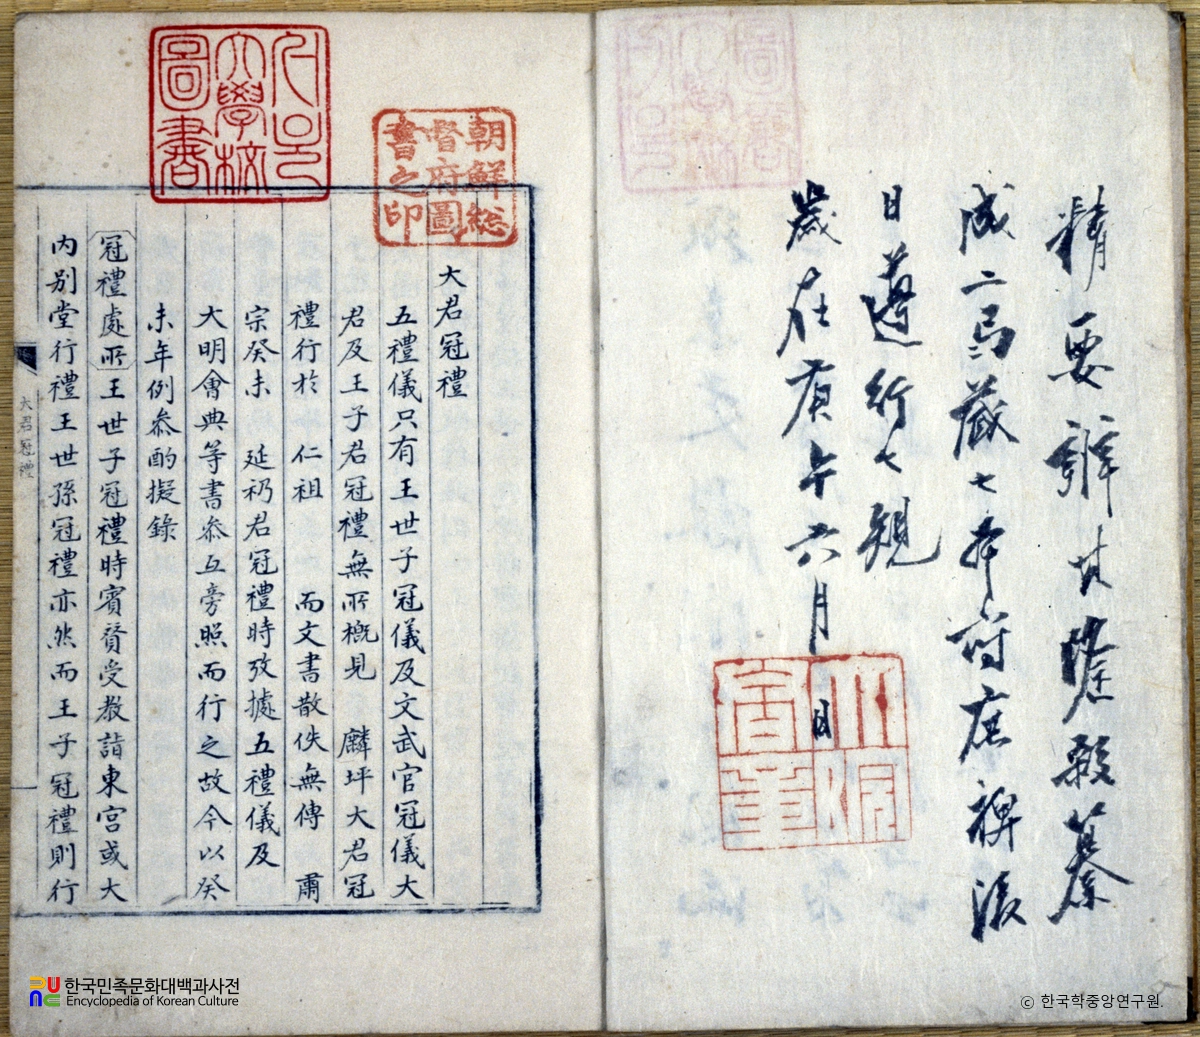 精要辨
成二局藏七本府庶裨後
日遵行之規
歲在庚午六月 日
朝鮮総
督府圖
書之印
大學校
圖書
大君冠禮
五禮儀只有王世子冠儀及文武官冠儀大
君及王子君冠禮無所槪見 麟坪大君冠
禮行於 仁祖 而文書散佚無傳 肅
宗癸未 延礽君冠禮時攷據五禮儀及
大明會典等書叅互旁照而行之故今以癸
未年例叅酌擬錄
冠禮處所王世子冠禮時賓賛受敎詣東宮或大
內別堂行禮王世孫冠禮亦然而王子冠禮則行
大君冠禮
한국민족문화대백과사전
Encyclopedia of Korean Culture
© 한국학중앙연구원.